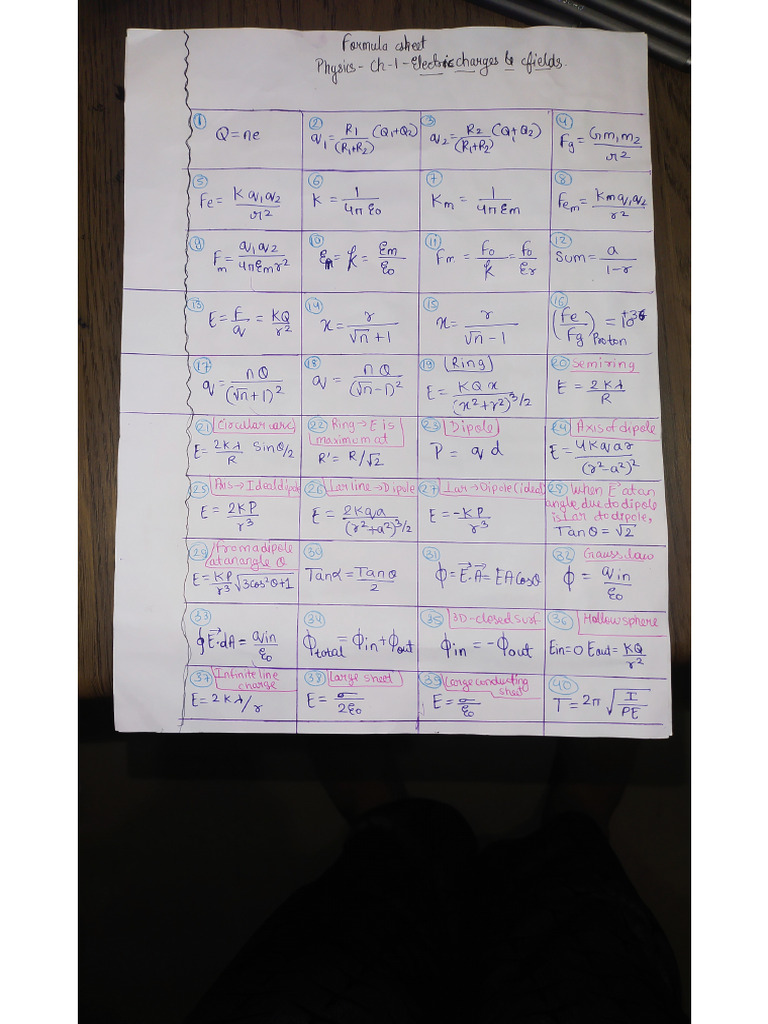 Formula sheet
Physics - Ch-1 - Electric charges & fields.
① Q = ne
② q₁ = R₁/(R₁+R₂) (Q₁+Q₂)
③ q₂ = R₂/(R₁+R₂) (Q₁+Q₂)
④ Fg = Gm₁m₂/r²
⑤ Fe = Kq₁q₂/r²
⑥ K = 1/4πε₀
⑦ Km = 1/4πεm
⑧ Fem = Kmq₁q₂/r²
⑨ Fm = q₁q₂/4πεmr²
⑩ = k = εm/ε₀
⑪ Fm = F₀/k = F₀/εr
⑫ Sum = a/1-r
⑬ E = F/q = KQ/r²
⑭ x = r/√n + 1
⑮ x = r/√n - 1
⑯ (Fe/Fg)Proton = 10⁺³⁶
⑰ q = nQ/(√n+1)²
⑱ q = nQ/(√n-1)²
⑲ (Ring)
E = KQx/(x²+r²)^3/2
⑳ Semiring
E = 2Kλ/R
㉑ Circular arc
E = 2Kλ/R Sinθ/2
㉒ Ring → E is
maximum at
R' = R/√2
㉓ Dipole
P = qd
㉔ Axis of dipole
E = 4Kqar/(r²-a²)²
㉕ Axis → Ideal dipole
E = 2KP/r³
㉖ ⊥ar line → Dipole
E = 2Kqa/(r²+a²)^3/2
㉗ ⊥ar → Dipole (ideal)
E = -KP/r³
㉘ When E⃗ at an
angle due to dipole
is ⊥ar to dipole,
Tanθ = √2
㉙ From a dipole
at an angle θ
E = KP/r³ √3cos²θ+1
㉚ Tanα = Tanθ/2
㉛ ϕ = E⃗.A⃗ = EACosθ
㉜ Gauss law
ϕ = qin/ε₀
㉝ ∮E⃗.dA = qin/ε₀
㉞ ϕtotal = ϕin + ϕout
㉟ 3D-closed surf
ϕin = -ϕout
㊱ Hollow sphere
Ein=0 Eout = KQ/r²
㊲ Infinite line
charge
E = 2Kλ/r
㊳ Large sheet
E = σ/2ε₀
㊴ Large conducting
sheet
E = σ/ε₀
㊵ T = 2π √I/PE